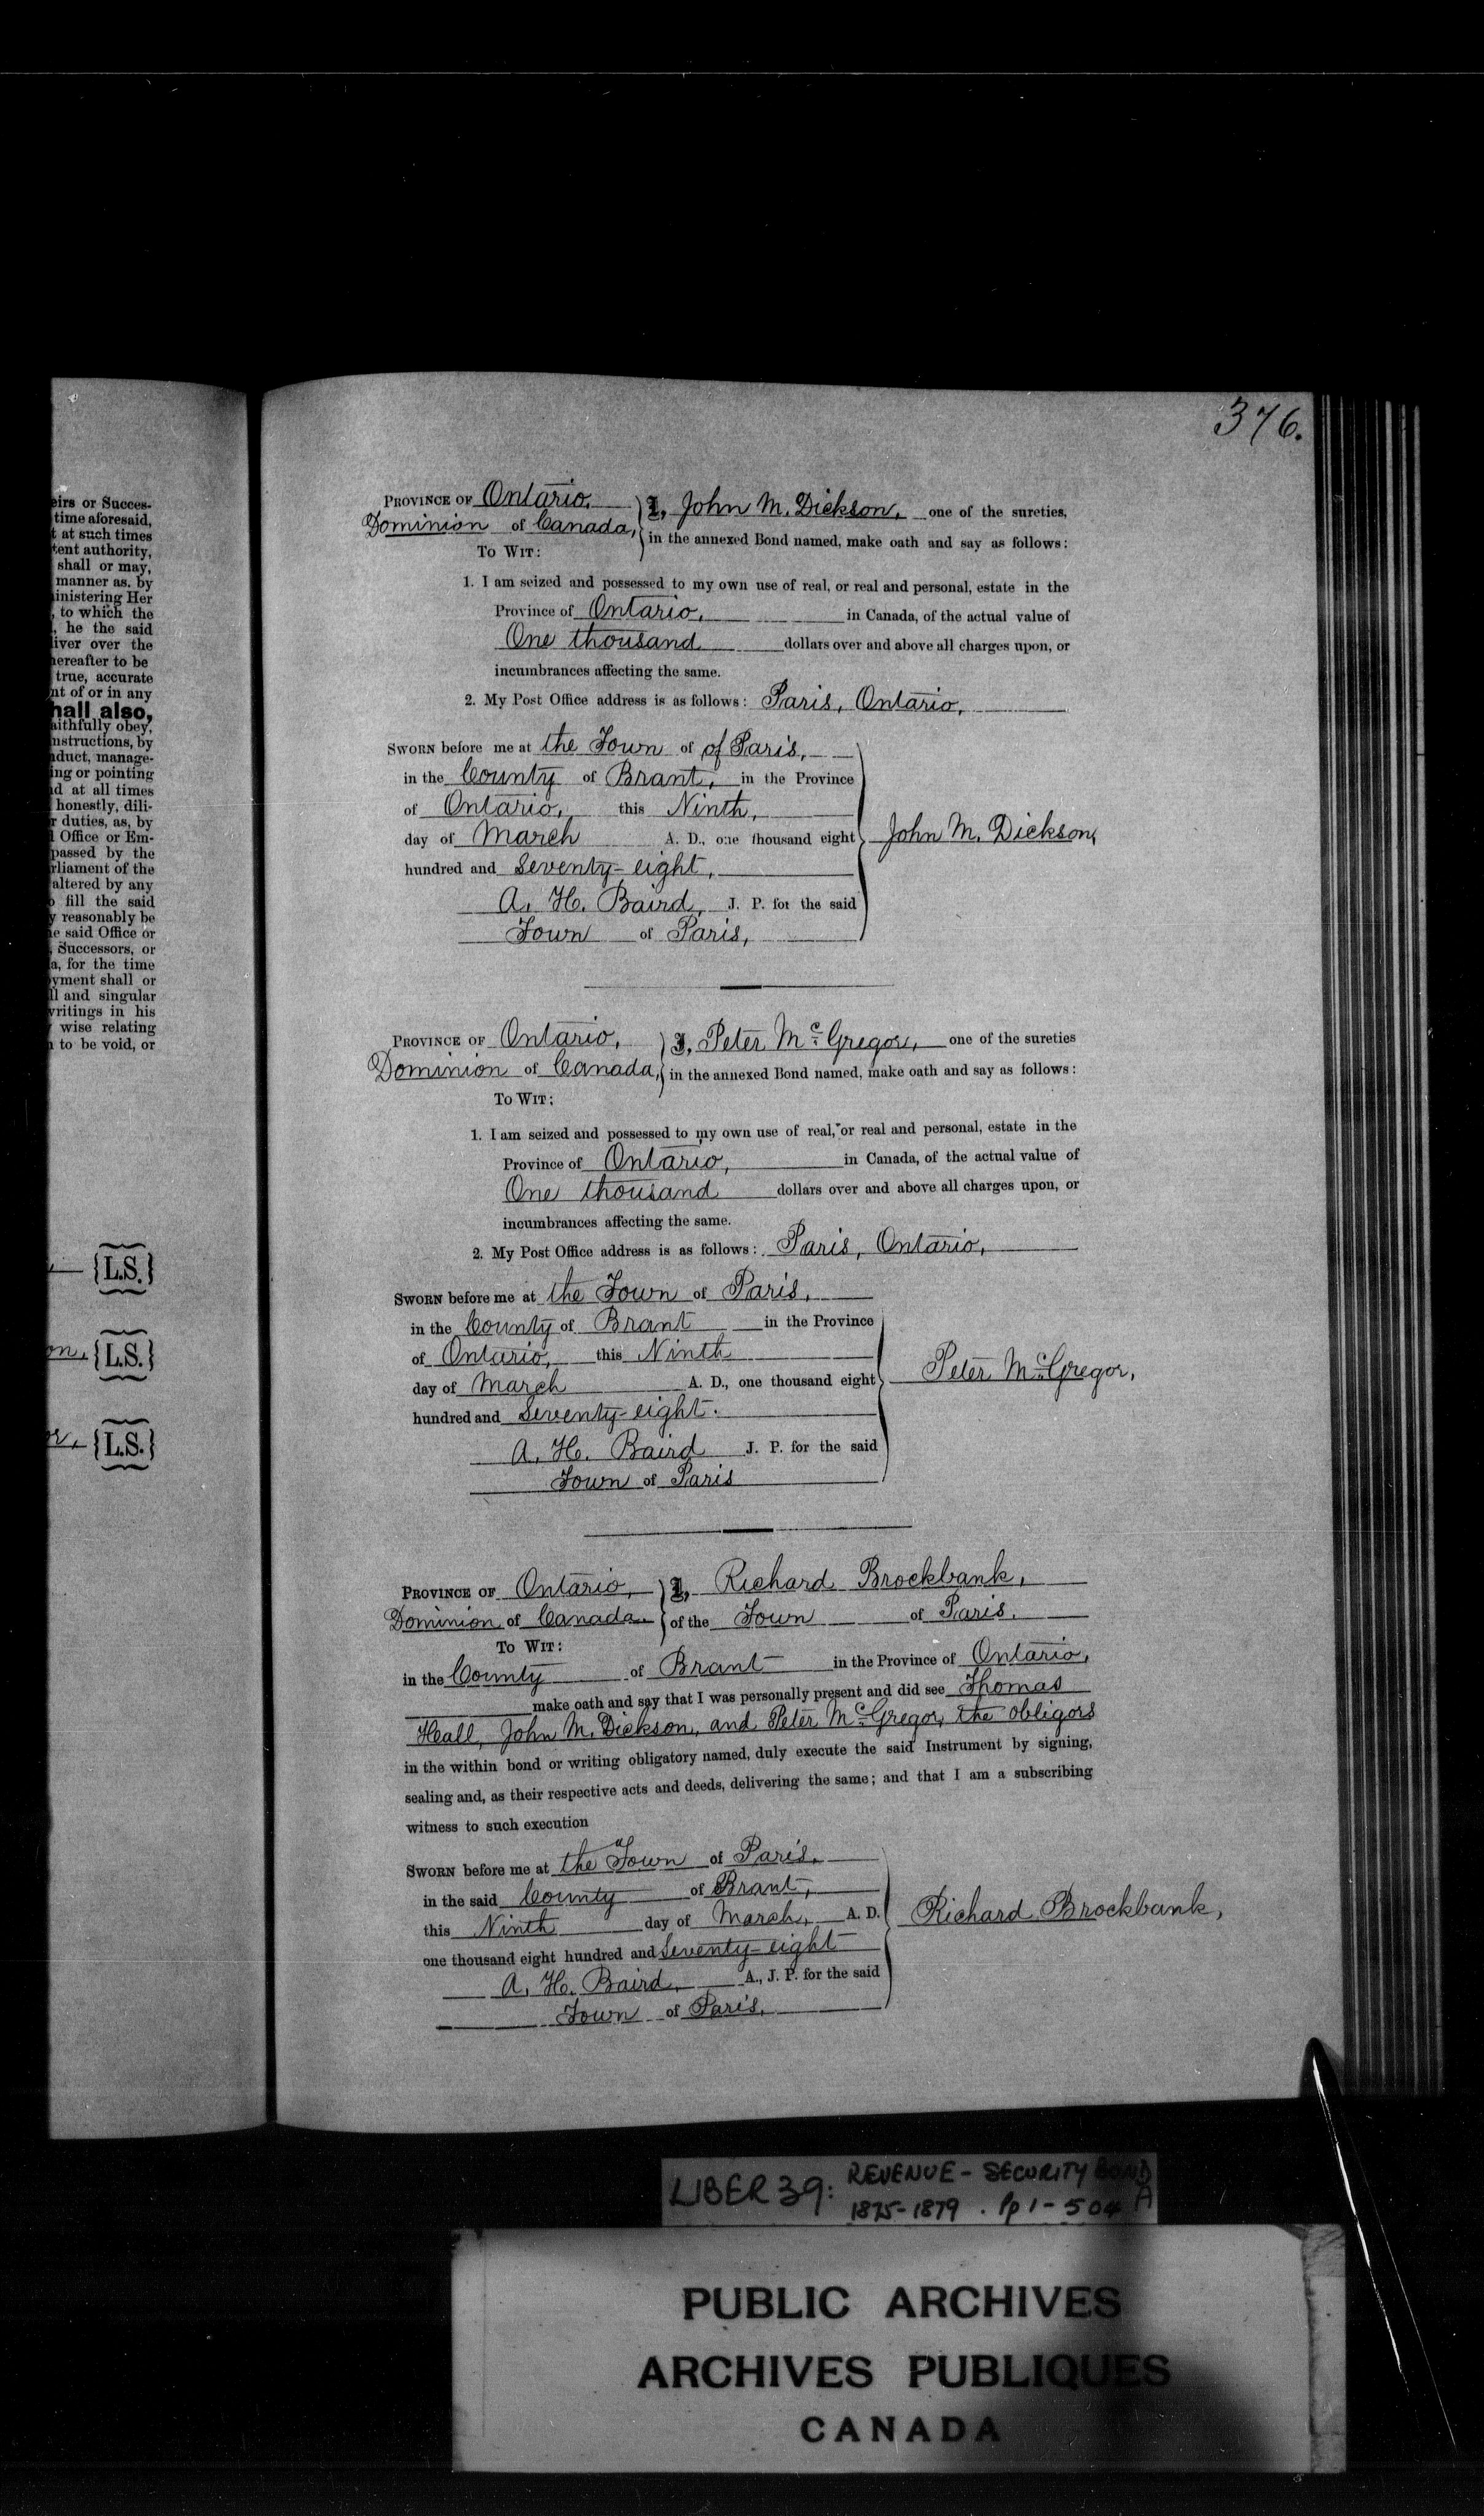 376.
eirs or Succes-
time aforesaid,
t at such times
tent authority,
shall or may,
manner as, by
inistering Her
, to which the
, he the said
liver over the
hereafter to be
true, accurate
nt of or in any
hall also,
aithfully obey,
nstructions, by
nduct, manage-
ing or pointing
d at all times
honestly, dili-
r duties, as, by
l Office or Em-
passed by the
rliament of the
altered by any
o fill the said
y reasonably be
e said Office or
, Successors, or
a, for the time
yment shall or
ll and singular
writings in his
wise relating
to be void, or
{L.S.}
on, {L.S.}
or, {L.S.}
PROVINCE OF Ontario, } I, John M. Dickson, one of the sureties,
Dominion of Canada, } in the annexed Bond named, make oath and say as follows:
TO WIT:
1. I am seized and possessed to my own use of real, or real and personal, estate in the
Province of Ontario, in Canada, of the actual value of
One thousand dollars over and above all charges upon, or
incumbrances affecting the same.
2. My Post Office address is as follows: Paris, Ontario,
SWORN before me at the Town of of Paris,
in the County of Brant, in the Province
of Ontario, this Ninth,
day of March A. D., one thousand eight
hundred and Seventy-eight,
John M. Dickson,
A. H. Baird, J. P. for the said
Town of Paris,
PROVINCE OF Ontario, } I, Peter McGregor, one of the sureties
Dominion of Canada, } in the annexed Bond named, make oath and say as follows:
TO WIT:
1. I am seized and possessed to my own use of real, or real and personal, estate in the
Province of Ontario, in Canada, of the actual value of
One thousand dollars over and above all charges upon, or
incumbrances affecting the same.
2. My Post Office address is as follows: Paris, Ontario,
SWORN before me at the Town of Paris,
in the County of Brant in the Province
of Ontario, this Ninth
day of March A. D., one thousand eight
hundred and Seventy-eight.
Peter McGregor,
A. H. Baird J. P. for the said
Town of Paris
PROVINCE OF Ontario, } I, Richard Brockbank,
Dominion of Canada } of the Town of Paris,
TO WIT:
in the County of Brant in the Province of Ontario,
make oath and say that I was personally present and did see Thomas
Heall, John M. Dickson, and Peter McGregor, the obligors
in the within bond or writing obligatory named, duly execute the said Instrument by signing,
sealing and, as their respective acts and deeds, delivering the same; and that I am a subscribing
witness to such execution
SWORN before me at the Town of Paris,
in the said County of Brant,
this Ninth day of March, A. D.
one thousand eight hundred and Seventy-eight
Richard Brockbank,
A. H. Baird, A., J. P. for the said
Town of Paris,
LIBER 39: REVENUE - SECURITY BOND
1875-1879 . Pp 1 - 504 A
PUBLIC ARCHIVES
ARCHIVES PUBLIQUES
CANADA